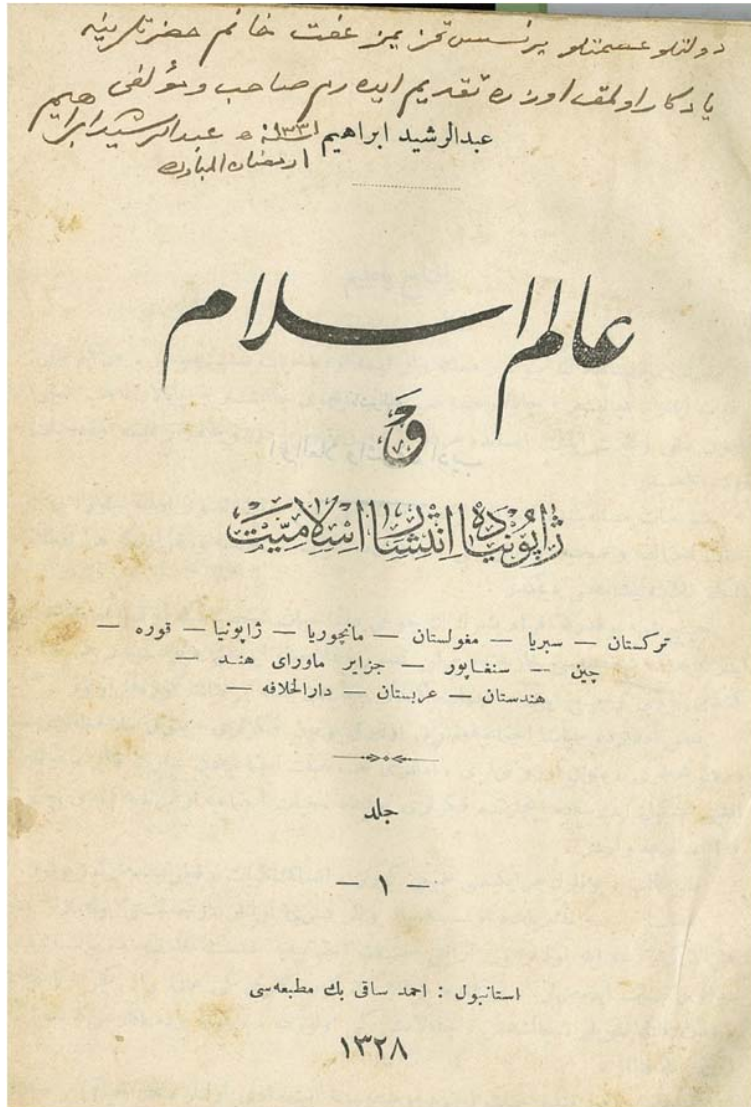 دولتلو عصمتلو پرنسس تحریمز عفت خانم حضرتلرینه
یادکار اولمق اوزره تقدیم ایده رم صاحب و مؤلفی
عبدالرشید ابراهیم
عبدالرشید ابراهیم
ارمضان المبارك
عالم اسلام
و
ژاپونیاده انتشار اسلامیت
تركستان — سبریا — مغولستان — مانچوریا — ژاپونیا — قوره —
چین — سنغاپور — جزایر ماورای هند —
هندستان — عربستان — دارالخلافه —
جلد
— ١ —
استانبول : احمد ساقی بك مطبعه‌سی
١٣٢٨